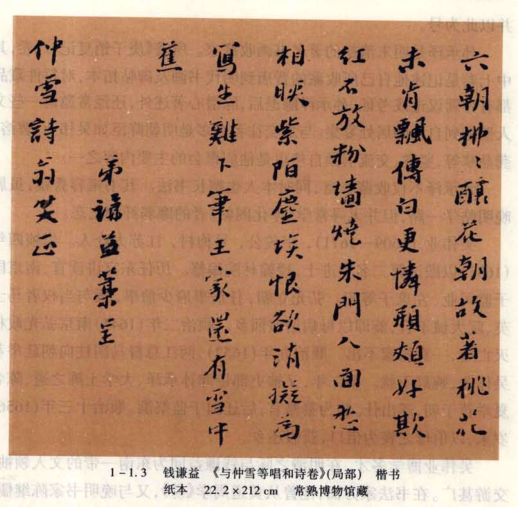 六朝柳釀花朝故著桃花
未肯飄傳句更憐顏頰好欺
紅不放粉牆燒朱門人面愁
相映紫陌塵埃恨欲消擬為
寫生難下筆王家恍有雪中
蕉
弟謙益藁呈
仲雪詩翁笑正
1-1.3 钱谦益《与仲雪等唱和诗卷》(局部) 楷书
纸本 22.2×212 cm 常熟博物馆藏